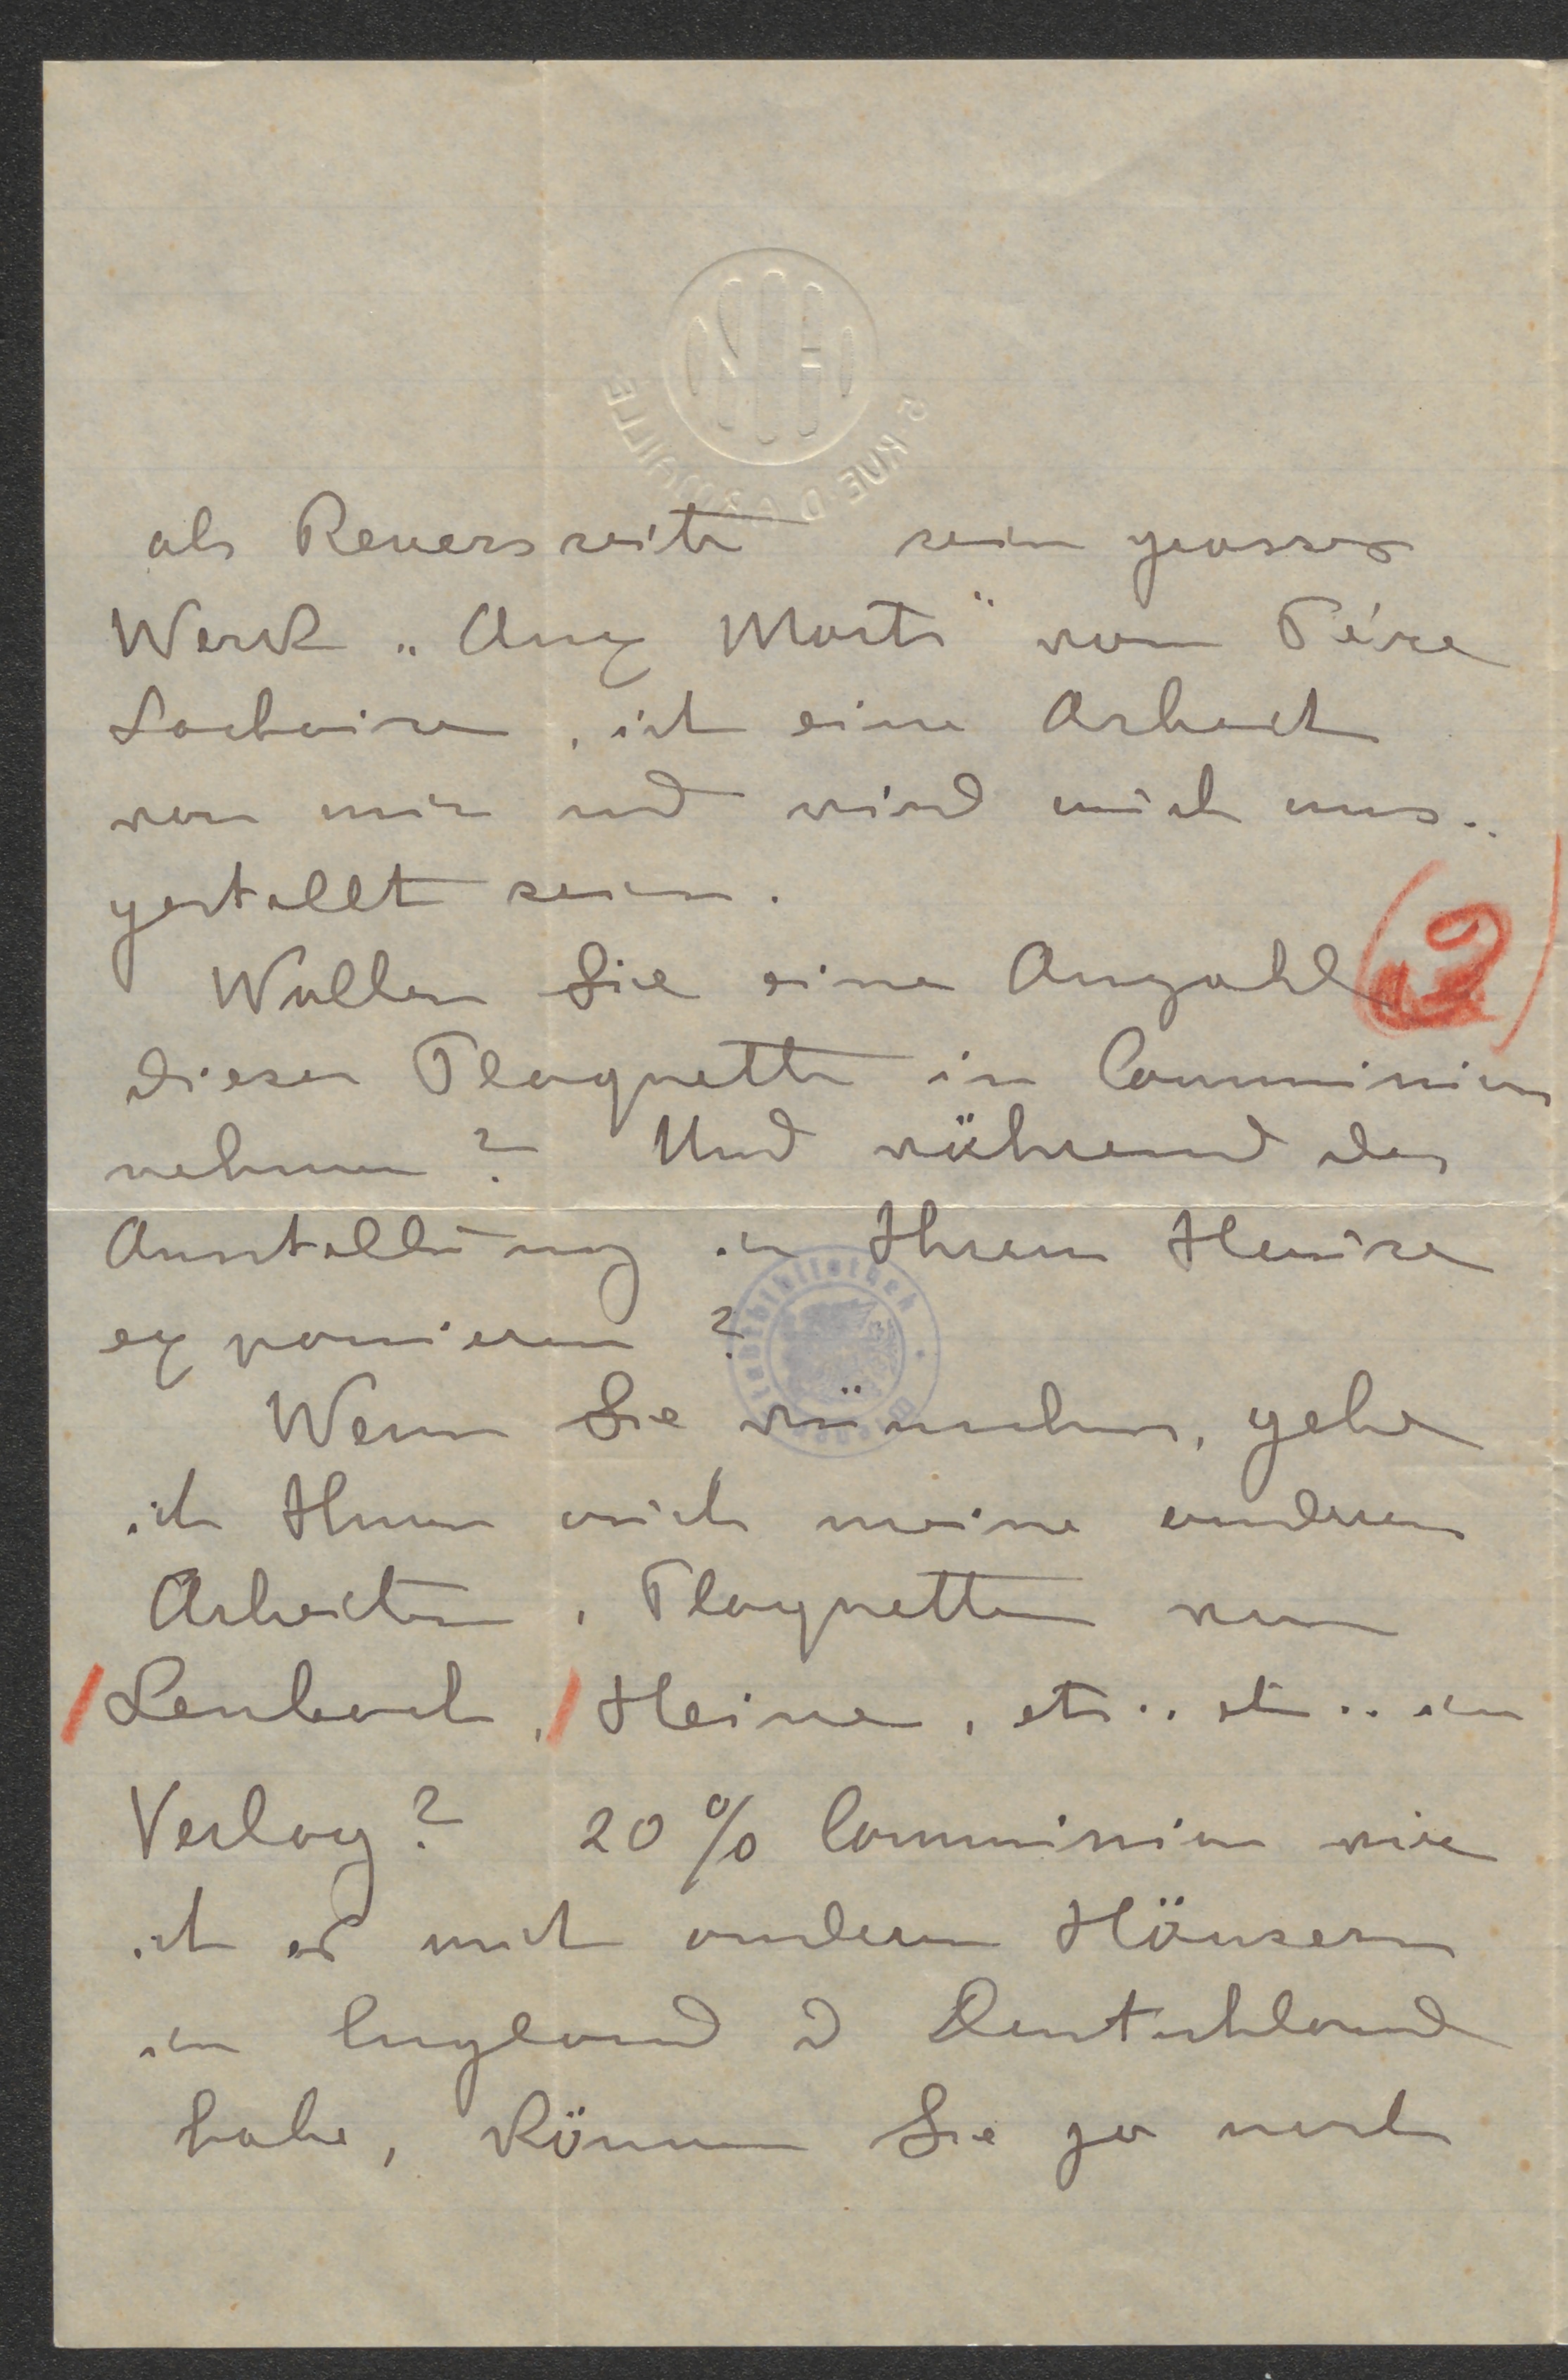 als Reversseite sein grosses
Werk „Aux Morts" vom Père
Lachaise, ist eine Arbeit
von mir und wird auch aus..
gestellt sein.
Wollen Sie eine Anzahl
dieser Plaquette in Commission
nehmen? Und während der
Ausstellung in Ihrem Hause
exponieren?
Wenn Sie wünschen, gebe
ich Ihnen auch meine anderen
Arbeiten, Plaquetten von
Lenbach, Heine, etc.. etc.. in
Verlag? 20% Commission wie
ich es mit anderen Häusern
in England & Deutschland
habe, können Sie ja auch
5 RUE D'ARMAILLÉ